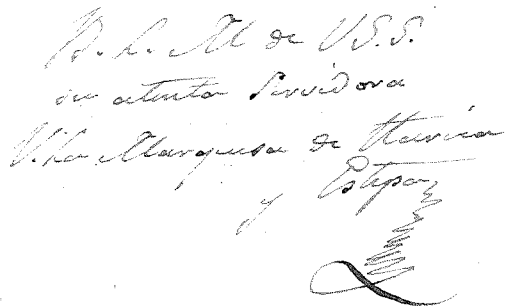 B. L. M de V.S.S.
su atenta Servidora
V. La Marquesa de
y Estepa